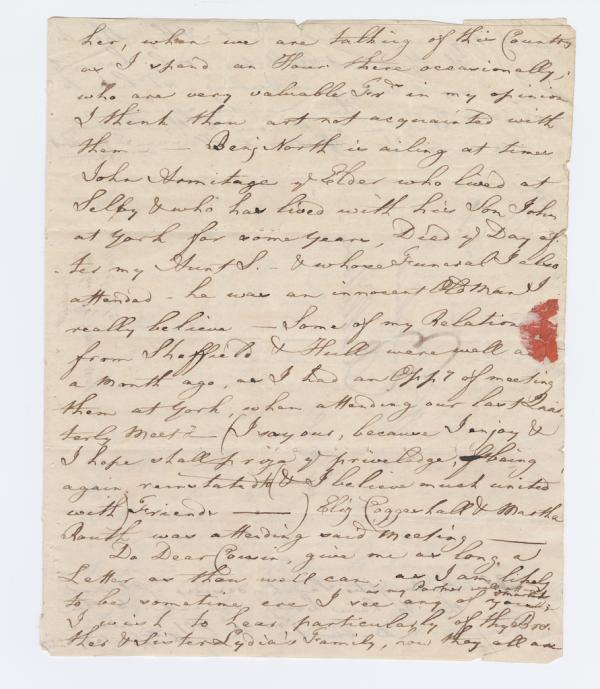 her, when we are talking of this Country
as I spend an Hour there occasionally,
who are very valuable Frds in my opinion
I think thou art not acquainted with
them — Benj North is ailing at times
John Armitage ye Elder who lived at
Selby & who has lived with his Son John
at York for some Years, Died ye Day af-
ter my Aunt S. - & whose Funeral I also
attended - he was an innocent Old Man I
really believe — Some of my Relations
from Sheffield & Hull were well
a month ago, as I had an Oppy of meeting
them at York, when attending our last Quar
terly Meetg — (I say our, because I enjoy &
I hope shall prize ye priveledge, of being
again reinstated & I believe much united
with Friends —) Eliz Coggeshall & Martha
Routh was attending said Meeting —
Do Dear Cousin, give me as long a
Letter as thou well can, as I am likely
as my Partner
to be sometime ere I see any of
I wish to hear particularly of thy Bro
ther & Sister Lydia's Family, now they all are